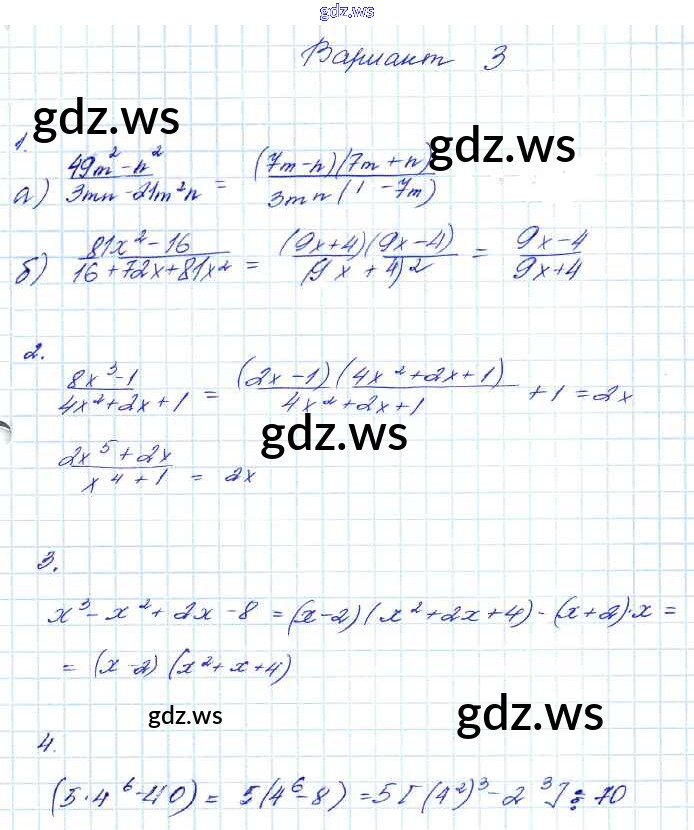 gdz.ws
Вариант 3
gdz.ws
gdz.ws
1.
а) (49m² - n²)/(3mn - 21m²n) = ((7m - n)(7m + n))/(3mn(1 - 7m))
б) (81x² - 16)/(16 + 72x + 81x²) = ((9x + 4)(9x - 4))/((9x + 4)²) = (9x - 4)/(9x + 4)
2.
(8x³ - 1)/(4x² + 2x + 1) = ((2x - 1)(4x² + 2x + 1))/(4x² + 2x + 1) + 1 = 2x
gdz.ws
(2x⁵ + 2x)/(x⁴ + 1) = 2x
3.
x³ - x² + 2x - 8 = (x - 2)(x² + 2x + 4) - (x + 2)·x =
= (x - 2)(x² + x + 4)
gdz.ws
gdz.ws
4.
(5·4⁶ - 40) = 5(4⁶ - 8) = 5[(4²)³ - 2³] ⋮ 70